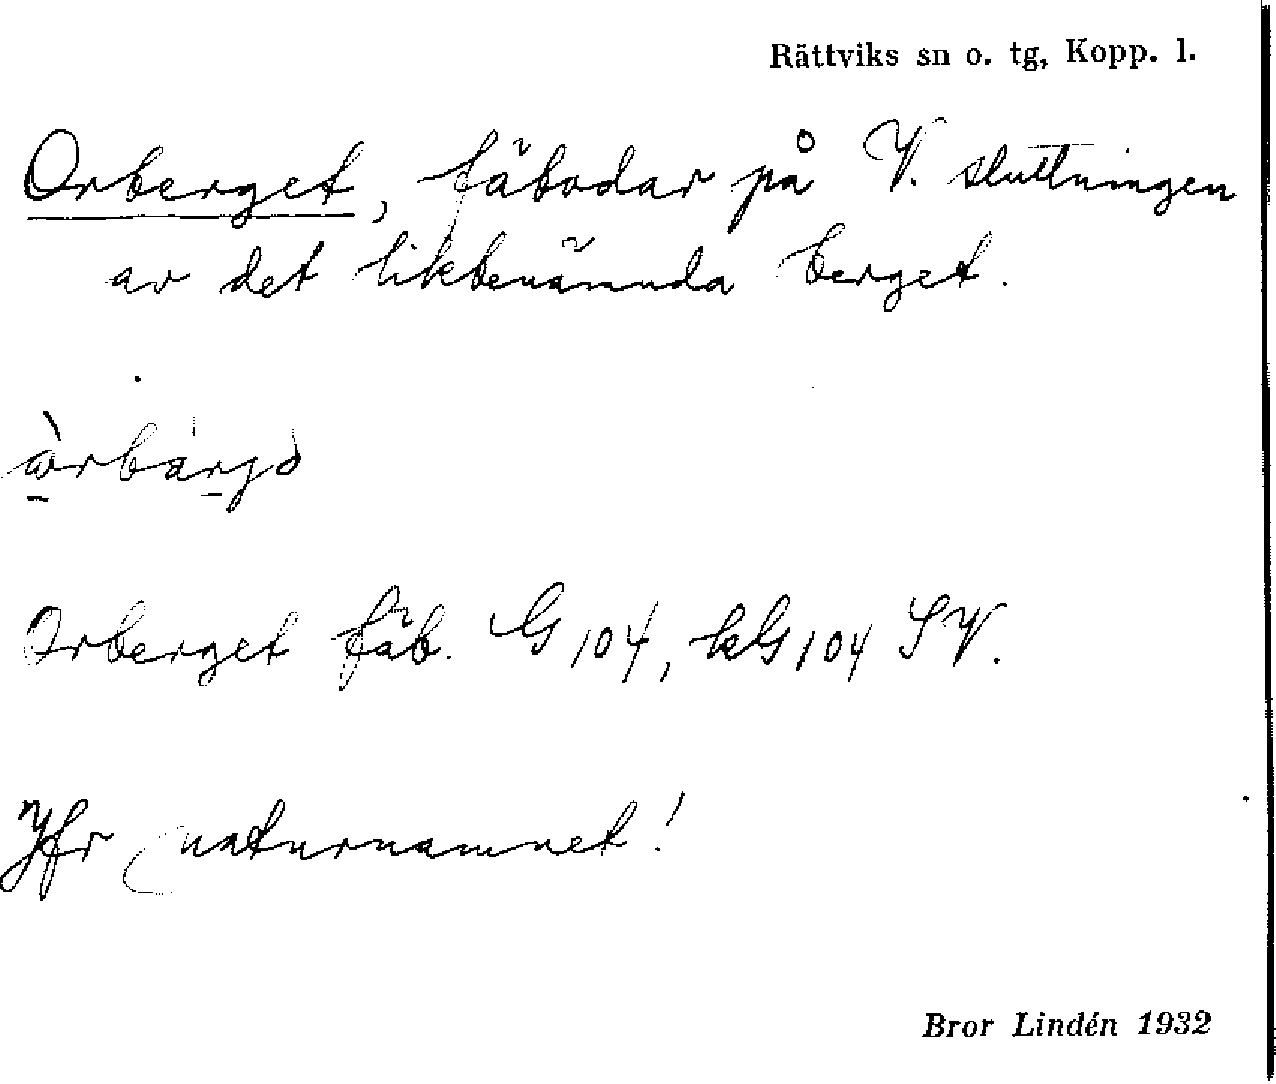 Rättviks sn o. tg, Kopp. l.
Orberget, fäbodar på V. sluttningen
av det likbenämnda berget.
Orberget fäb. G 104, kG 104 SV.
Jfr naturnamnet!
Bror Lindén 1932